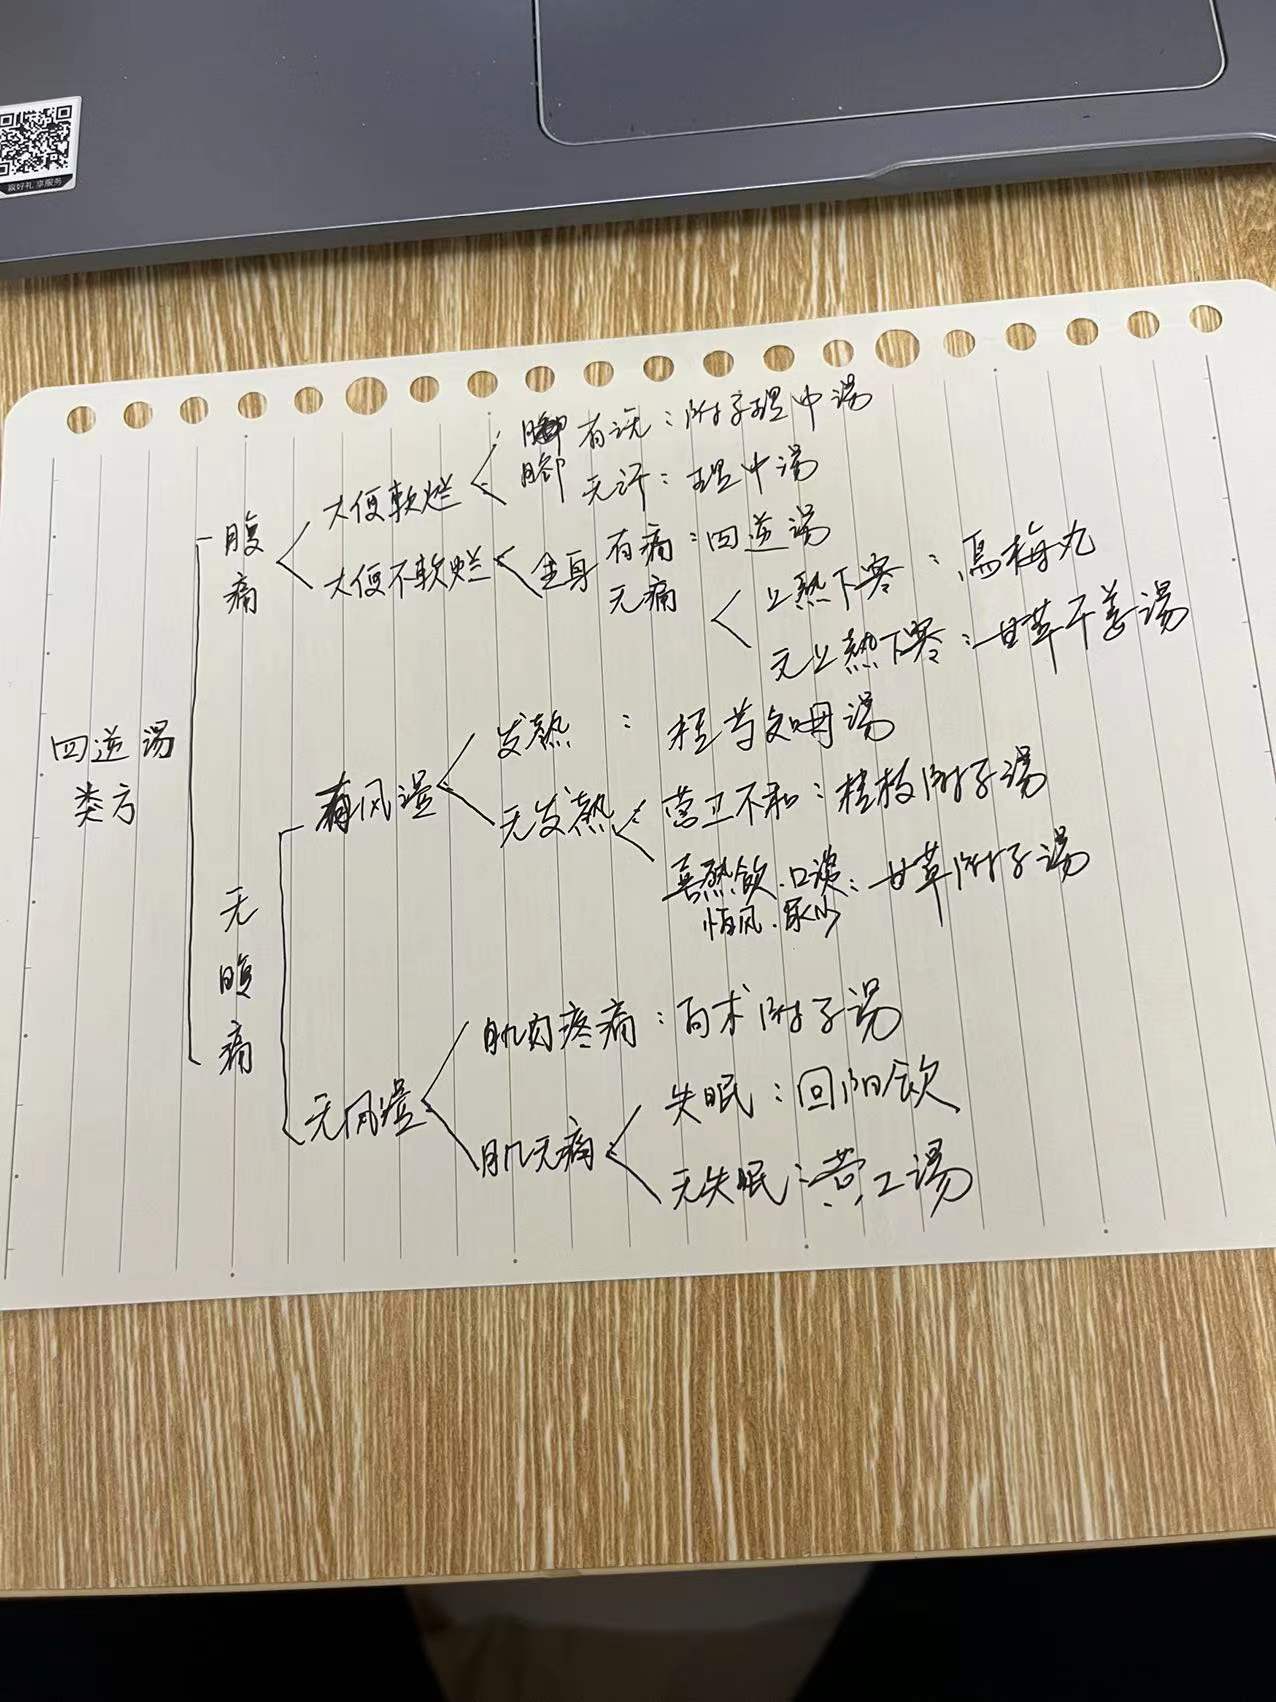 享服务
四逆汤
类方
腹
痛
大便软烂
脚 有汗：附子理中汤
无汗：理中汤
大便不软烂
全身 有痛：四逆汤
无痛
上热下寒：乌梅丸
无上热下寒：甘草干姜汤
无
腹
痛
有风湿
发热：桂芍知母汤
无发热
营卫不和：桂枝附子汤
喜热饮.口淡：甘草附子汤
恶风.尿少
无风湿
肌肉疼痛：白术附子汤
肌无痛
失眠：回阳饮
无失眠：